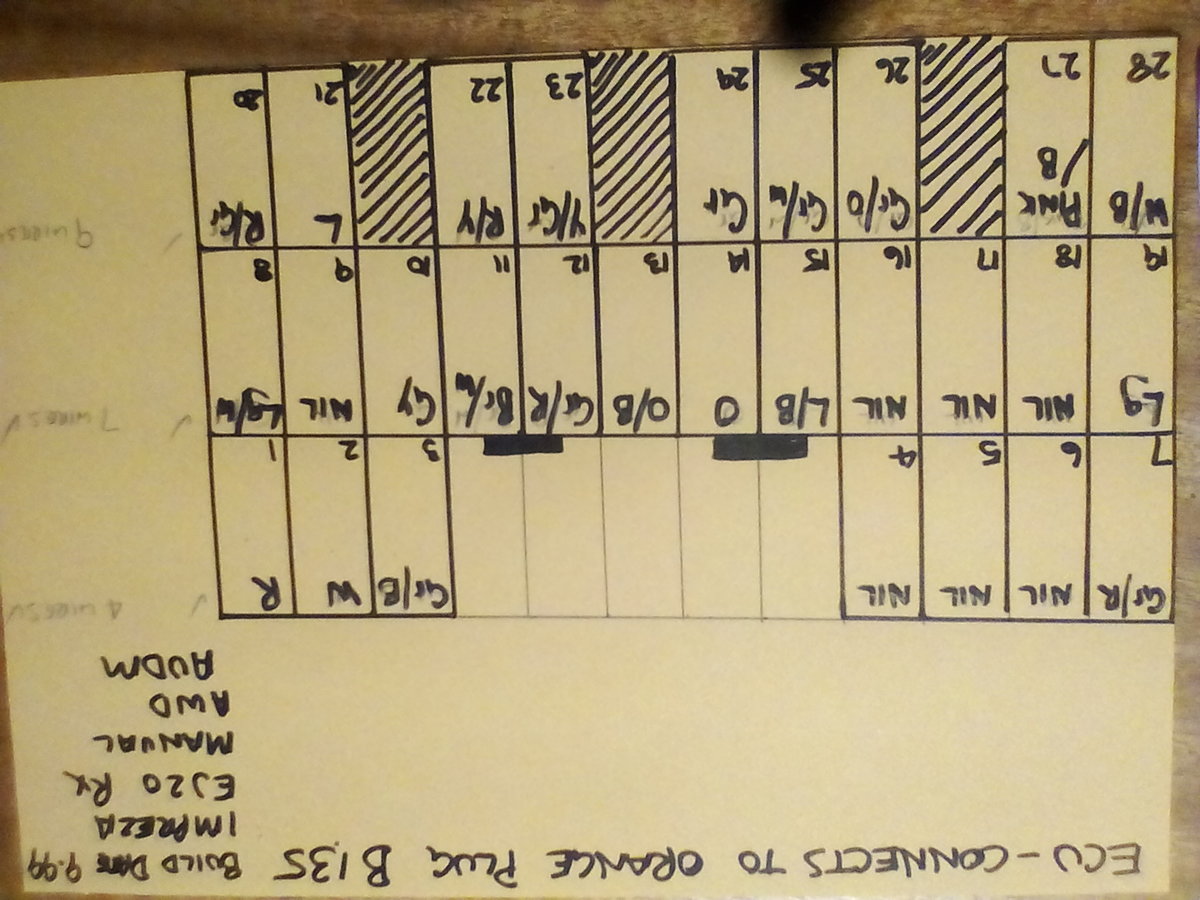 ECU - CONNECTS TO ORANGE PLUG B135 BUILD DATE 9.99
IMPREZA
EJ20 RX
MANUAL
AWD
AUDM
Gr/R NIL NIL NIL Gr/B W R 4 WIRES ✓
7 6 5 4 3 2 1
Lg NIL NIL NIL L/B O O/B Gr/R Br/W Gy NIL Lg/W 7 WIRES ✓
19 18 17 16 15 14 13 12 11 10 9 8
W/B PINK/B Gr/O Gr/W Gr Y/Gr R/Y L R/Gr 9 WIRES
28 27 26 25 24 23 22 21 20